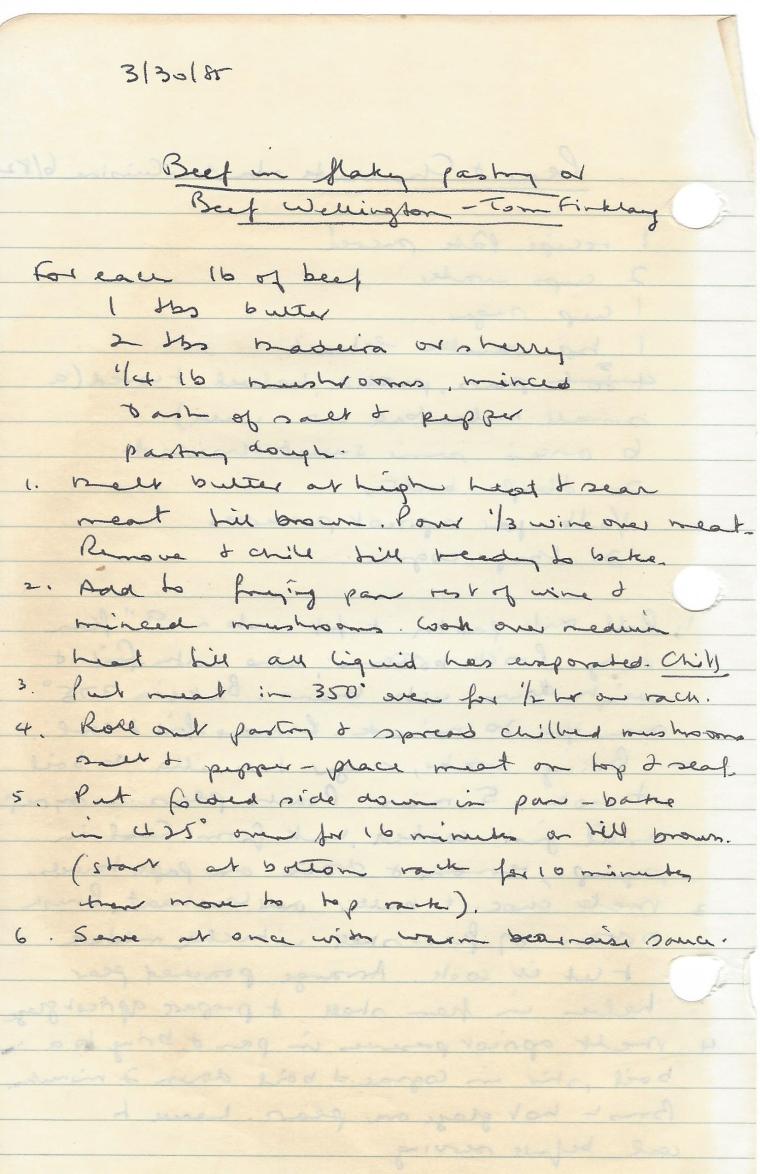 3/30/85
Beef in flaky pastry or
Beef Wellington - Tom Finklang
For each 1b of beef
1 tbs butter
2 tbs madeira or sherry
1/4 1b mushrooms, minced
Dash of salt & pepper
pastry dough.
1. Melt butter at high heat & sear
meat till brown. Pour 1/3 wine over meat.
Remove & chill till ready to bake.
2. Add to frying pan rest of wine &
minced mushrooms. Cook over medium
heat till all liquid has evaporated. Chill
3. Put meat in 350° oven for 1/2 hr on rack.
4. Roll out pastry & spread chilled mushrooms
salt & pepper - place meat on top & seal.
5. Put folded side down in pan - bake
in 425° oven for 16 minutes or till brown.
(start at bottom rack for 10 minutes,
then move to top rack).
6. Serve at once with warm bearnaise sauce.